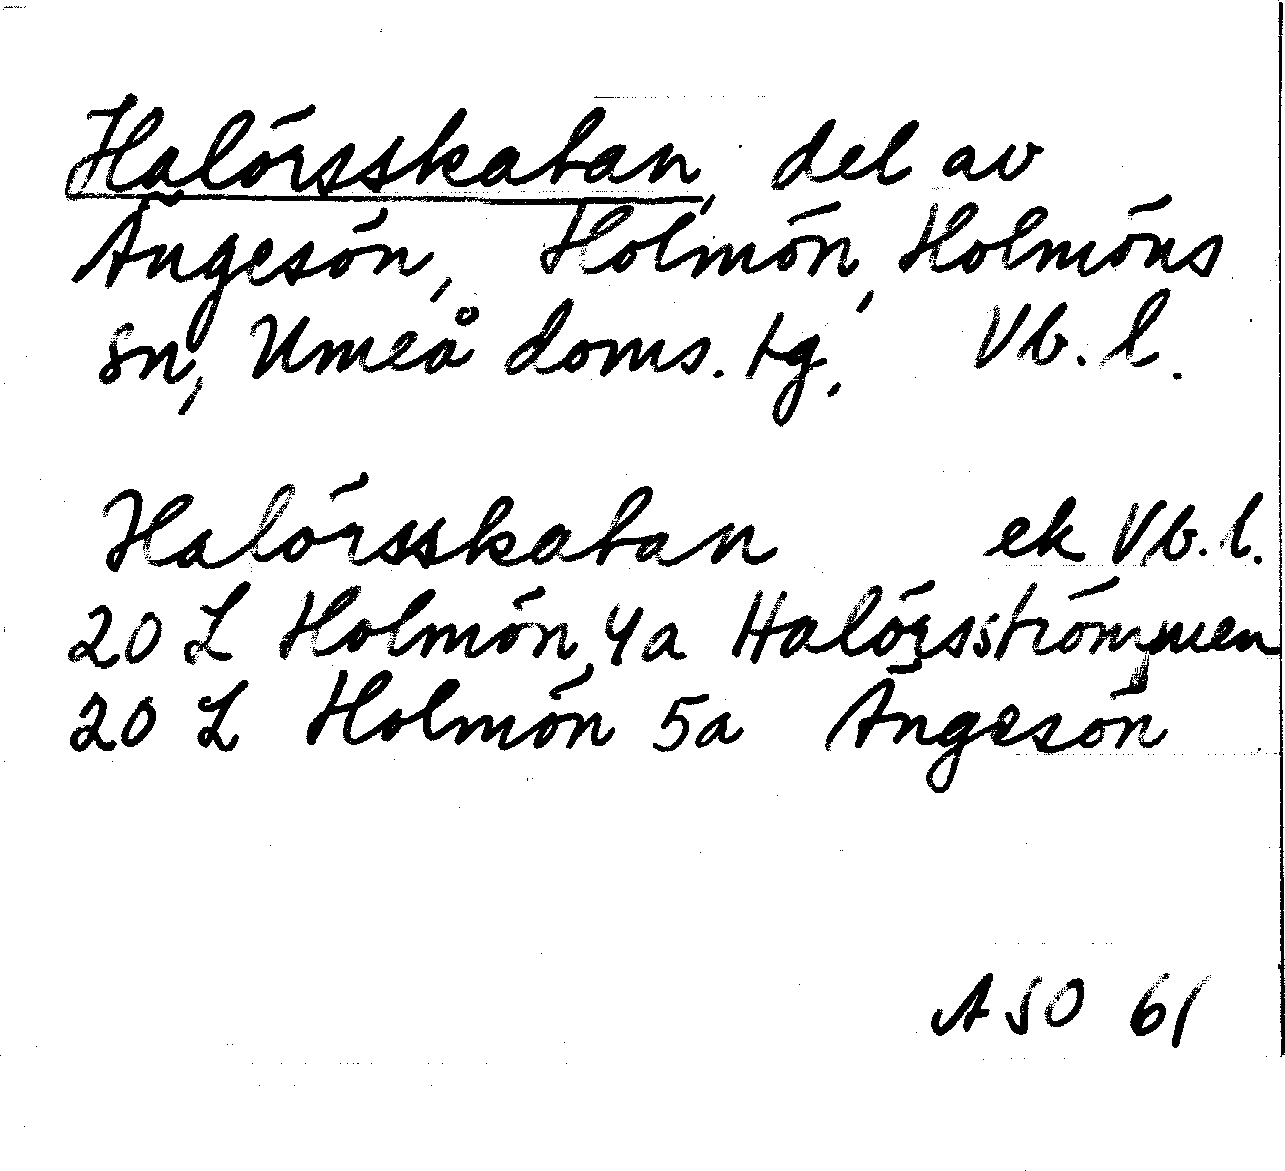 Halörsskatan, del av
Ängesön, Holmön, Holmöns
sn, Umeå doms. tg, Vb. l.
Halörsskatan ek Vb. l.
20 L Holmön, 4a Halörsströmmen
20 L Holmön 5a Ängesön
ASO 61